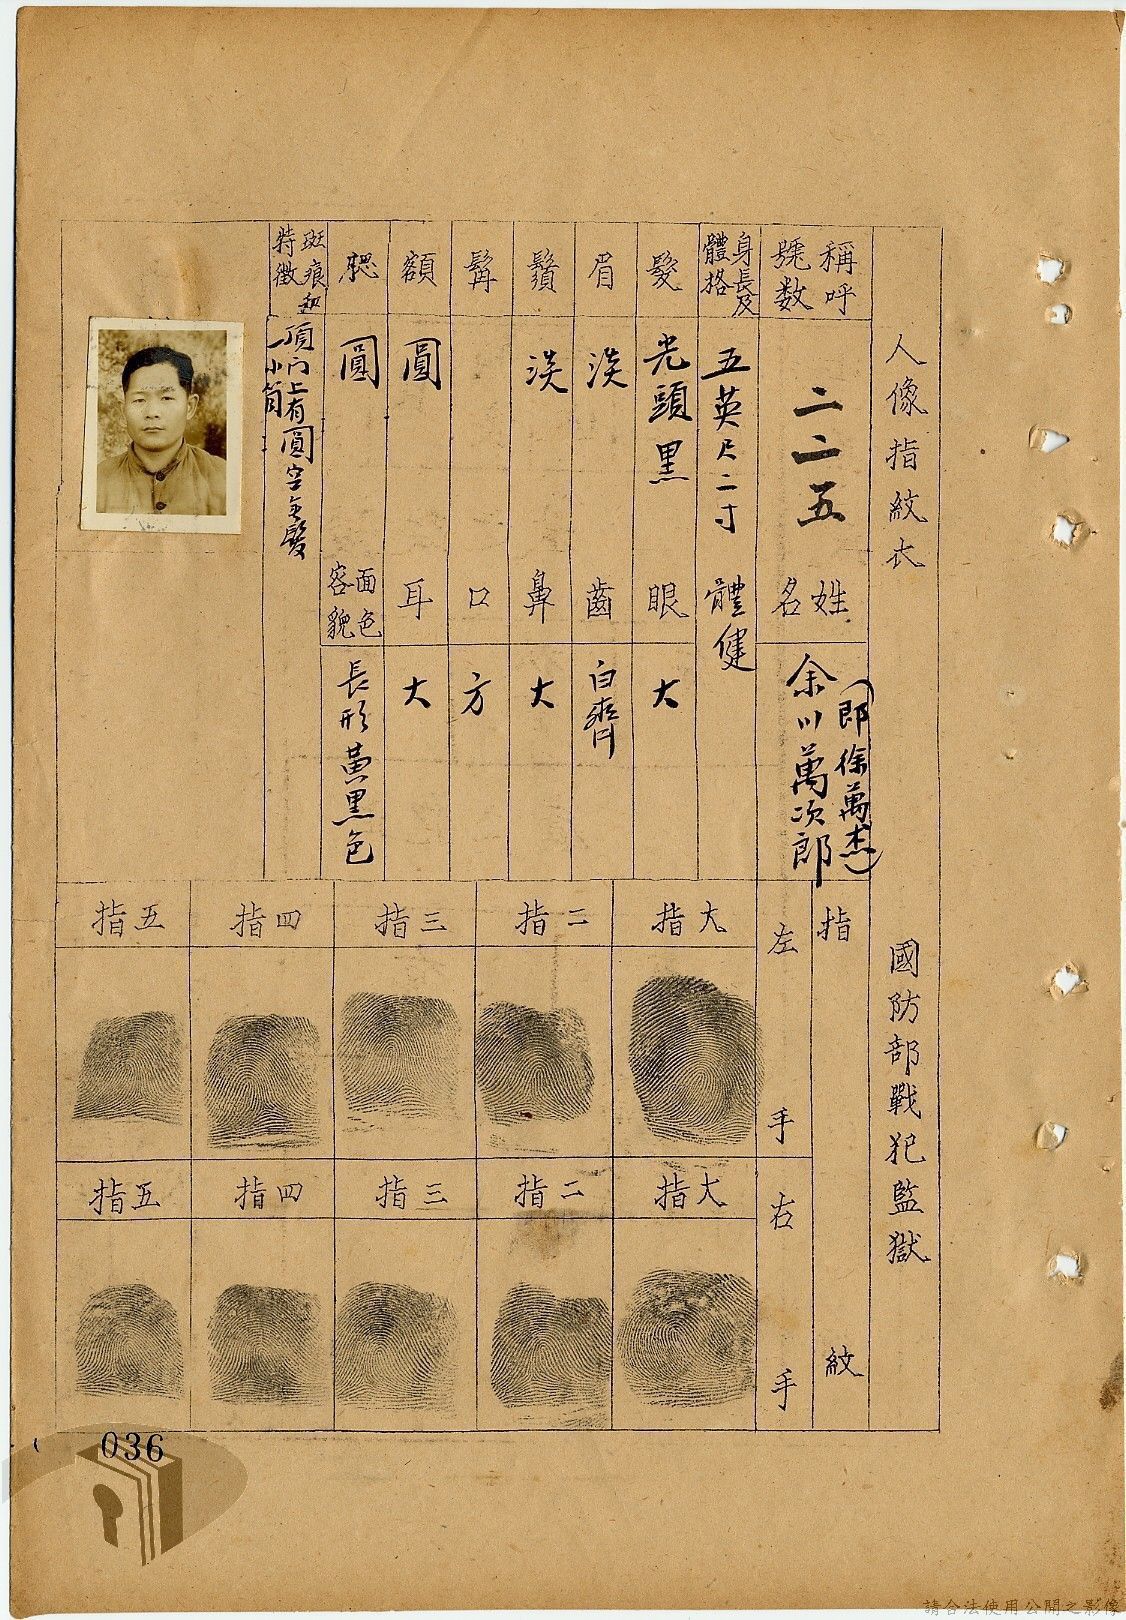 人像指紋表
國防部戰犯監獄
稱呼號數
二二五
姓名
余川萬次郎
(即徐萬杰)
身長及體格
五英尺二寸
體健
髮
光頭黑
眼
大
眉
淡
齒
白齊
鬚
淡
鼻
大
髯
口
方
額
圓
耳
大
腮
圓
面色容貌
長形黃黑色
斑痕和特徵
頂门上有圓空無髮
一小筒
指紋
左手
大指
二指
三指
四指
五指
右手
大指
二指
三指
四指
五指
036
請合法使用公開之影像